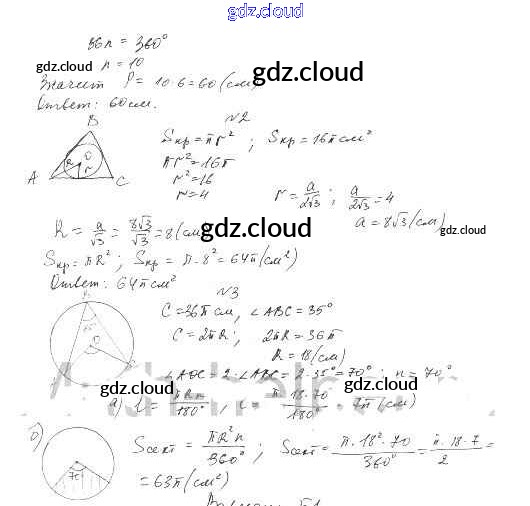 gdz.cloud
36n = 360°
n = 10
gdz.cloud
gdz.cloud
Значит P = 10·6 = 60 (см)
Ответ: 60 см.
N2
B
Sкр = πr² ; Sкр = 16π см²
πr² = 16π
r² = 16
r = 4
O
R
r
A
C
r = a/2√3 ; a/2√3 = 4
a = 8√3 (см)
gdz.cloud
R = a/√3 = 8√3/√3 = 8 (см)
gdz.cloud
Sкр = πR² ; Sкр = π·8² = 64π (см²)
Ответ: 64π см²
N3
B
C = 36π см, ∠ABC = 35°
C = 2πR ; 2πR = 36π
R = 18 (см)
O
∠AOC = 2·∠ABC = 2·35° = 70° ; n = 70°
gdz.cloud
gdz.cloud
а) l = πRn/180° , l = π·18·70/180° = 7π (см)
б)
70
Sсект = πR²n/360° ; Sсект = π·18²·70/360° = π·18·7/2 =
= 63π (см²)